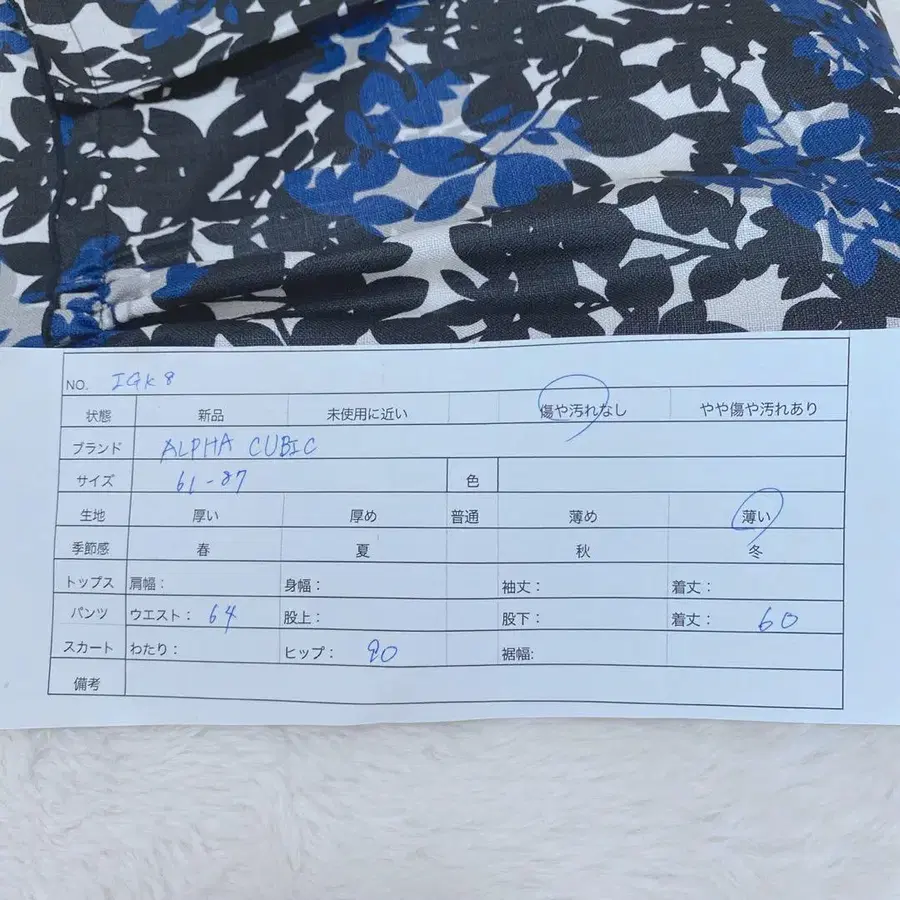 NO. IGK8
状態 新品 未使用に近い 傷や汚れなし やや傷や汚れあり
ブランド ALPHA CUBIC
サイズ 61-87 色
生地 厚い 厚め 普通 薄め 薄い
季節感 春 夏 秋 冬
トップス 肩幅： 身幅： 袖丈： 着丈：
パンツ ウエスト： 64 股上： 股下： 着丈： 60
スカート わたり： ヒップ： 90 裾幅:
備考